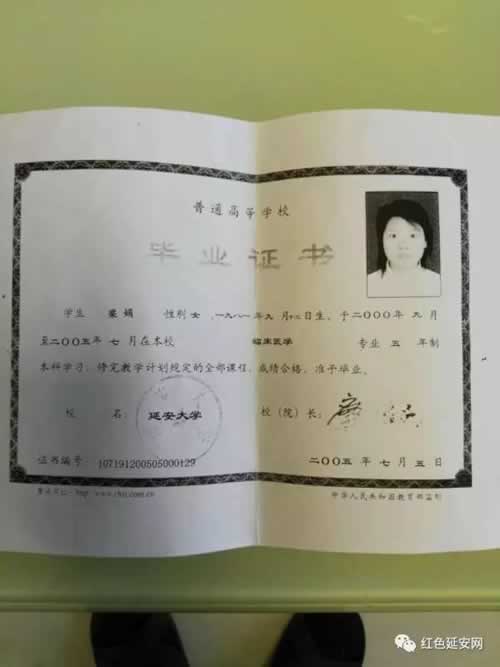 普通高等学校
毕业证书
学生 栾娟 性别 女 ,一九八一年九月十二日生，于二〇〇〇年 九 月
至二〇〇五年 七 月在本校 临床医学 专业 五 年制
本科学习，修完教学计划规定的全部课程，成绩合格，准予毕业。
校 名： 延安大学 校（院）长：
证书编号 107191200505000129 二〇〇五 年 七 月 五 日
查询网址：http://www.chsi.com.cn 中华人民共和国教育部监制
红色延安网